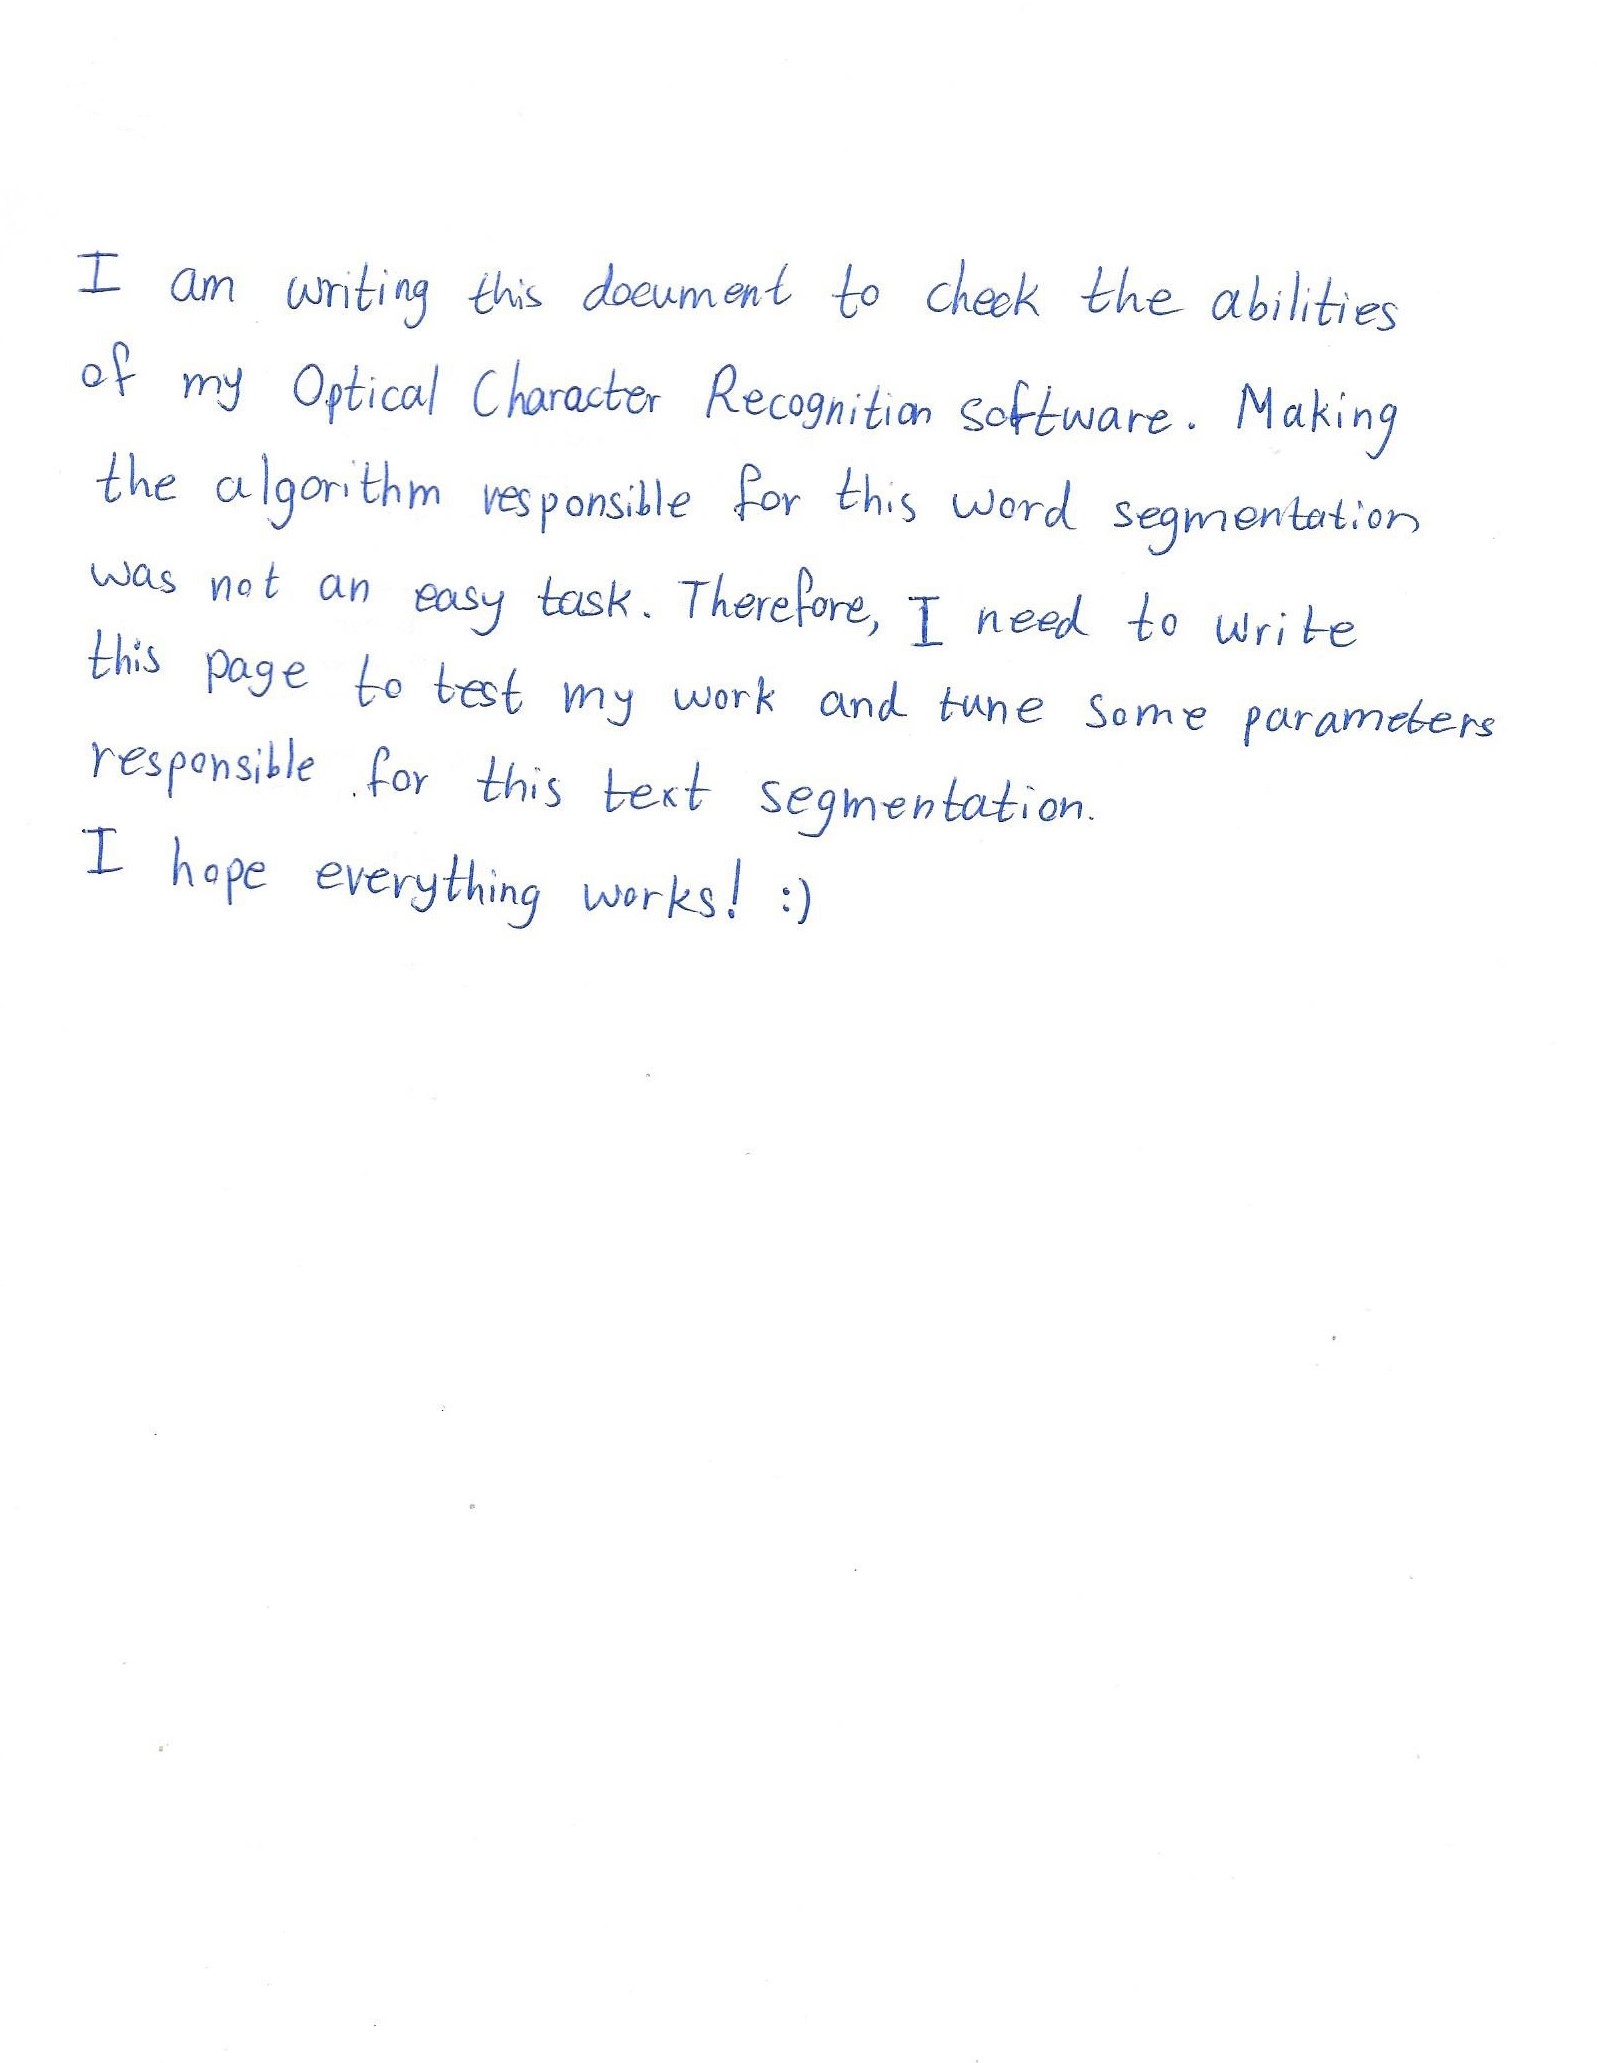 I am writing this document to check the abilities
of my Optical Character Recognition software. Making
the algorithm responsible for this word segmentation
was not an easy task. Therefore, I need to write
this page to test my work and tune some parameters
responsible for this text segmentation.
I hope everything works! :)